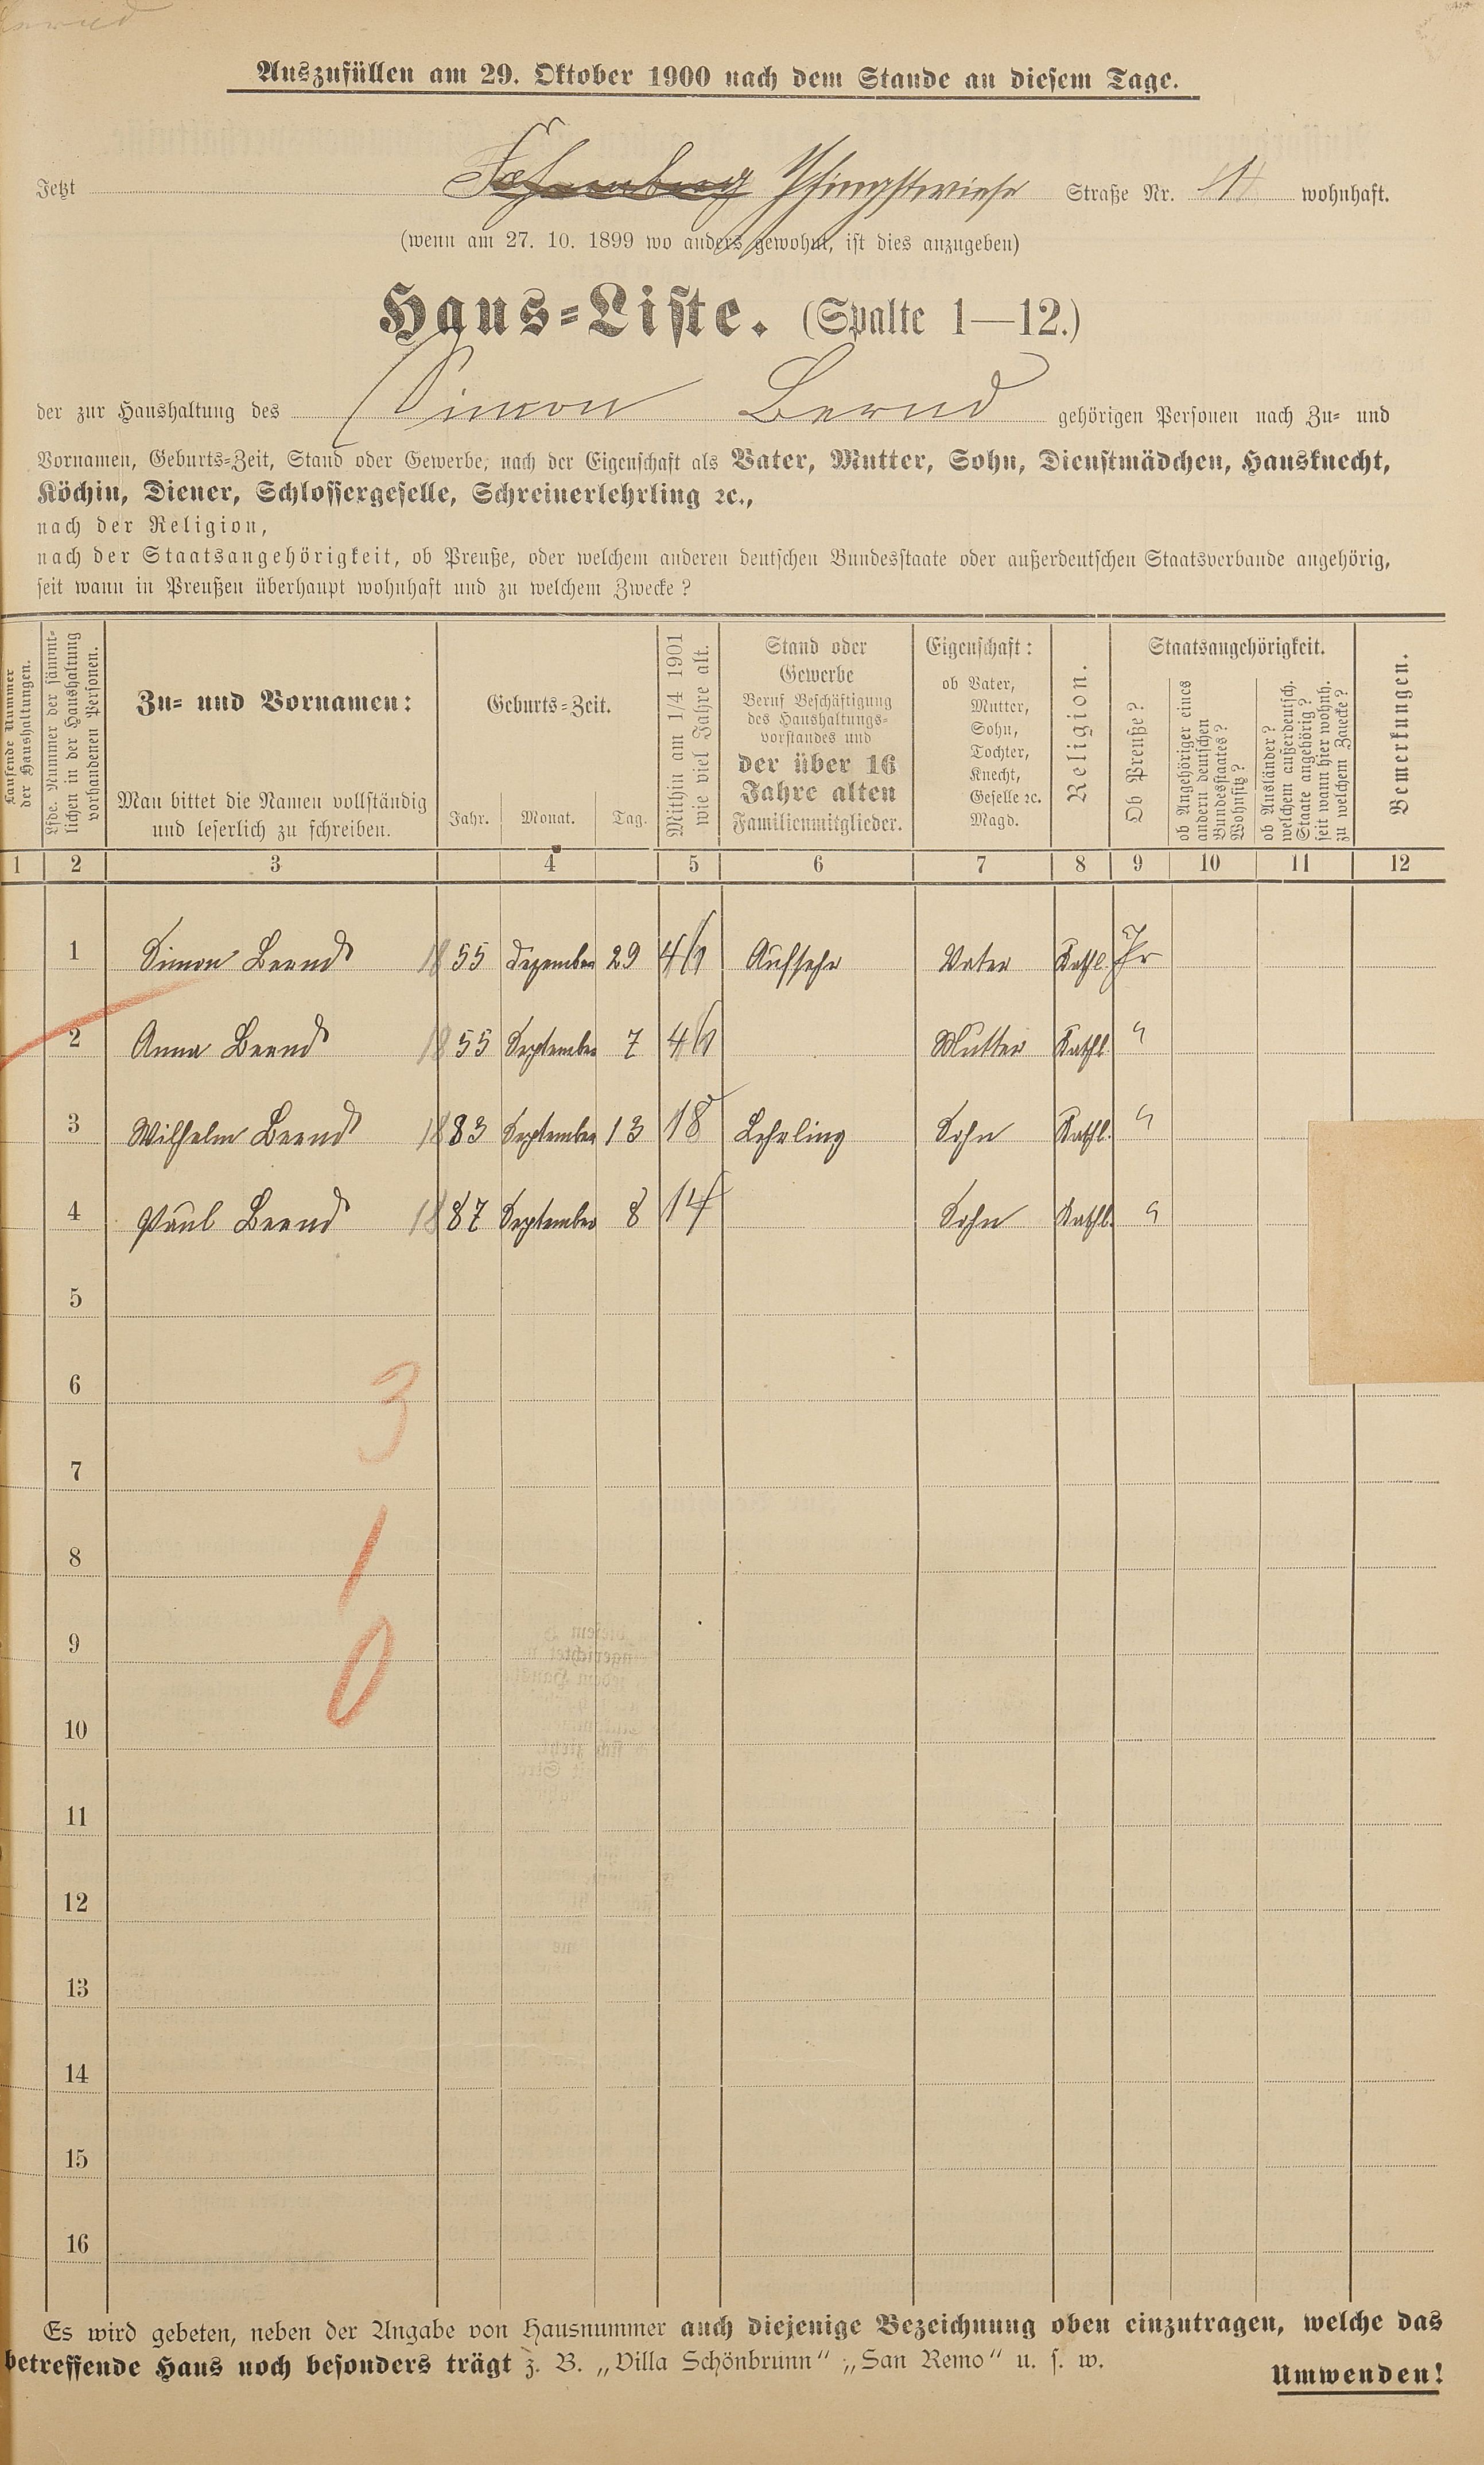 Bernd
Auszufüllen am 29. Oktober 1900 nach dem Stande an diesem Tage.
Jetzt Pfingstwiese Straße Nr. wohnhaft.
(wenn am 27. 10. 1899 wo anders gewohnt, ist dies anzugeben)
Haus=Liste. (Spalte 1—12.)
der zur Haushaltung des Simon Bernd gehörigen Personen nach Zu= und
Vornamen, Geburts=Zeit, Stand oder Gewerbe, nach der Eigenschaft als Vater, Mutter, Sohn, Dienstmädchen, Hausknecht,
Köchin, Diener, Schlossergeselle, Schreinerlehrling ꝛc.,
nach der Religion,
nach der Staatsangehörigkeit, ob Preuße, oder welchem anderen deutschen Bundesstaate oder außerdeutschen Staatsverbande angehörig,
seit wann in Preußen überhaupt wohnhaft und zu welchem Zwecke?
Laufende Nummer
der Haushaltungen.
Lfde. Nummer der sämmt=
lichen in der Haushaltung
vorhandenen Personen.
Zu= und Vornamen:
Man bittet die Namen vollständig
und leserlich zu schreiben.
Geburts=Zeit.
Jahr. Monat. Tag.
Mithin am 1/4 1901
wie viel Jahre alt.
Stand oder
Gewerbe
Beruf Beschäftigung
des Haushaltungs=
vorstandes und
der über 16
Jahre alten
Familienmitglieder.
Eigenschaft:
ob Vater,
Mutter,
Sohn,
Tochter,
Knecht,
Geselle ꝛc.
Magd.
Religion.
Staatsangehörigkeit.
Ob Preuße?
ob Angehöriger eines
andern deutschen
Bundesstaates?
Wohnsitz?
ob Ausländer?
welchem außerdeutsch.
Staate angehörig?
seit wann hier wohnh.
zu welchem Zwecke?
Bemerkungen.
1 2 3 4 5 6 7 8 9 10 11 12
1 Simon Bernd 1855 Dezember 29 Aufseher Vater Kathl. Pr
2 Anna Bernd 1855 September 7 Mutter Kathl. "
3 Wilhelm Bernd 1883 September 13 18 Lehrling Sohn Kathl. "
4 Paul Bernd 1887 September 8 14 Sohn Kathl. "
5
6
3
7
8
1
9
0
10
11
12
13
14
15
16
Es wird gebeten, neben der Angabe von Hausnummer auch diejenige Bezeichnung oben einzutragen, welche das
betreffende Haus noch besonders trägt z. B. „Villa Schönbrunn" „San Remo" u. s. w.
Umwenden!